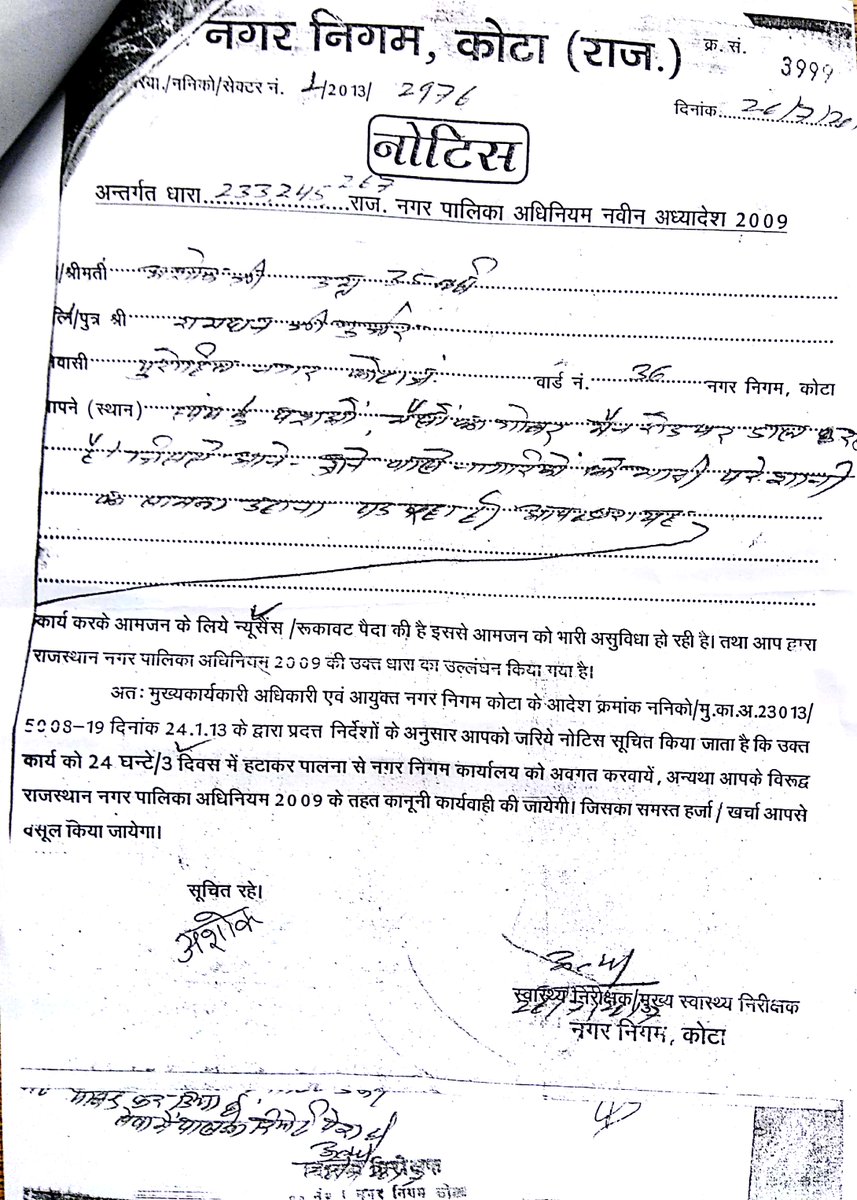 नगर निगम, कोटा (राज.)
क्र.सं. 3999
/ननिको/सेक्टर नं. 1/2013/ 2976
दिनांक 26/7/20
नोटिस
अन्तर्गत धारा 233 245 267 राज. नगर पालिका अधिनियम नवीन अध्यादेश 2009
/श्रीमती अशोक जी उम्र 35 वर्ष
/पुत्र श्री रामधन जी गुर्जर
वासी पुरोहित नगर कोटा वार्ड नं. 36 नगर निगम, कोटा
आपने (स्थान) स्वयं के पशुओं, भैंसों का गोबर मैन रोड पर डाल
है। जिससे आने-जाने वाले नागरिकों को भारी परेशानी
का सामना उठाना पड़ रहा है। आपके द्वारा यह
कार्य करके आमजन के लिये न्यूसेंस /रूकावट पैदा की है इससे आमजन को भारी असुविधा हो रही है। तथा आप द्वारा
राजस्थान नगर पालिका अधिनियम् 2009 की उक्त धारा का उल्लंघन किया गया है।
अतः मुख्यकार्यकारी अधिकारी एवं आयुक्त नगर निगम कोटा के आदेश क्रमांक ननिको/मु.का.अ.23013/
5008-19 दिनांक 24.1.13 के द्वारा प्रदत्त निर्देशों के अनुसार आपको जरिये नोटिस सूचित किया जाता है कि उक्त
कार्य को 24 घन्टे/3 दिवस में हटाकर पालना से नगर निगम कार्यालय को अवगत करवायें, अन्यथा आपके विरूद्व
राजस्थान नगर पालिका अधिनियम 2009 के तहत कानूनी कार्यवाही की जायेगी। जिसका समस्त हर्जा / खर्चा आपसे
वसूल किया जायेगा।
सूचित रहे।
अशोक
स्वास्थ्य निरीक्षक/मुख्य स्वास्थ्य निरीक्षक
नगर निगम, कोटा
नगर निगम कोटा